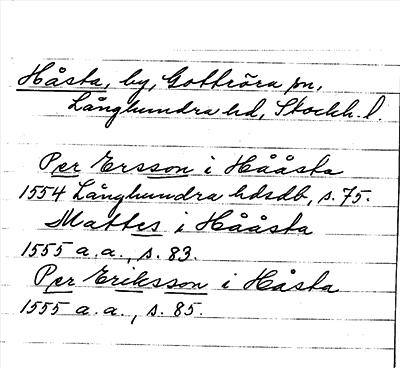 Håsta, by, Gottröra sn,
Långhundra hd, Stockh. l.
Per Ersson i Hååsta
1554 Långhundra hdsdb, s. 75.
Mattes i Hååsta
1555 a. a., s. 83.
Per Eriksson i Håsta
1555 a. a., s. 85.